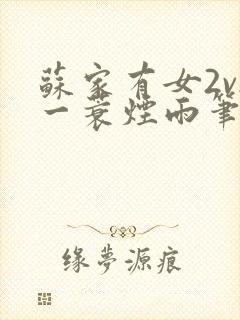 蘇家有女2v
一蓑煙雨筆
缘夢源痕